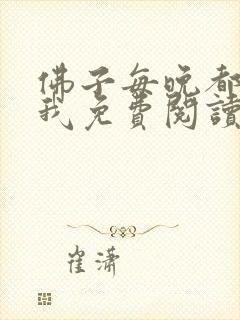 佛子每晚都
我免費閱讀
崔瀟